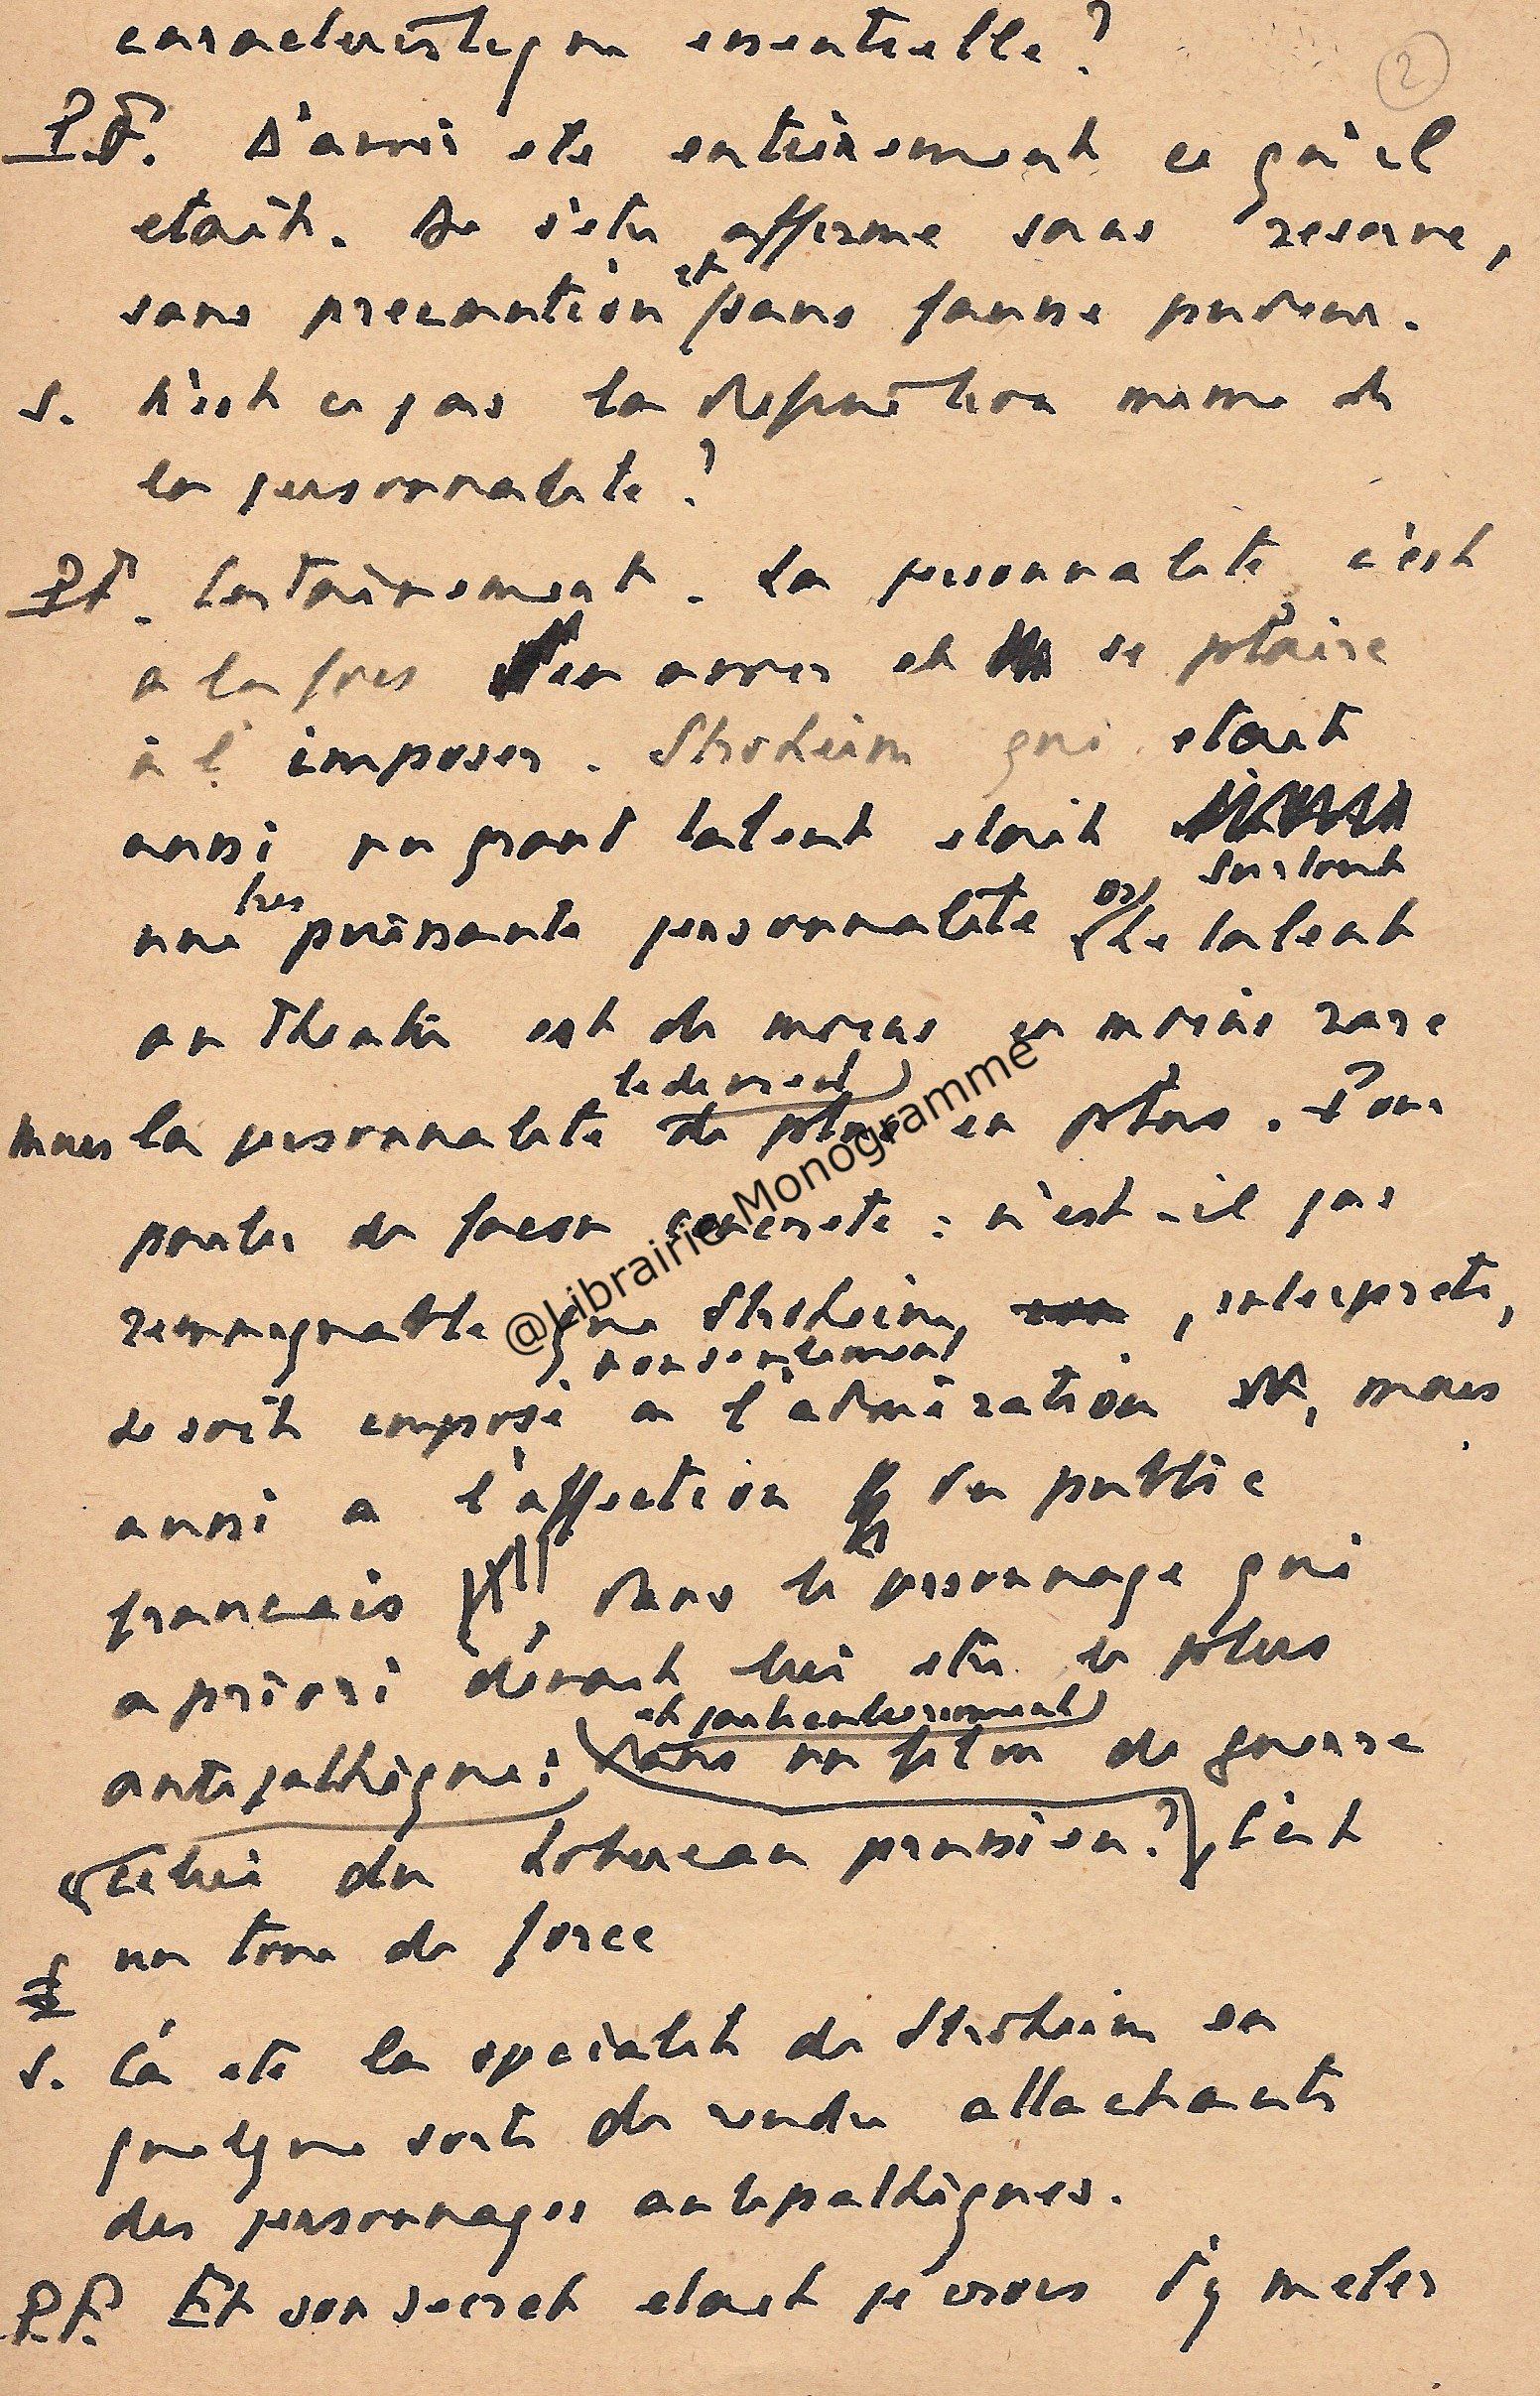 caracteristique essentielle?
2
P.F. D'avoir ete entierement ce qu'il
etait. De s'etre affirme sans reserve,
sans precaution et sans fausse pudeur.
S. N'est ce pas la definition meme de
la personnalite?
P.F. Certainement. La personnalite c'est
a la fois en avoir et se plaire
à l'imposer. Stroheim qui etait
aussi un grand talent etait
surtout
une tres puissante personnalite or, le talent
au theatre est de moins en moins rare
mais la personnalite le devient de plus en plus. Pour
parler de facon concrete : n'est-il pas
remarquable que Stroheim, , interprete,
se soit imposé non seulement a l'admiration, mais
aussi a l'affection du public
francais, dans le personnage qui
a priori devait lui etre le plus
antipathique: et particulierement dans un film de guerre
celui du hobereau prussien? C'est
un tour de force
S. Ca ete la specialite de Stroheim en
quelque sorte de rendre attachants
des personnages antipathiques.
P.F. Et son secret etait je crois d'y meler
@Librairie Monogramme